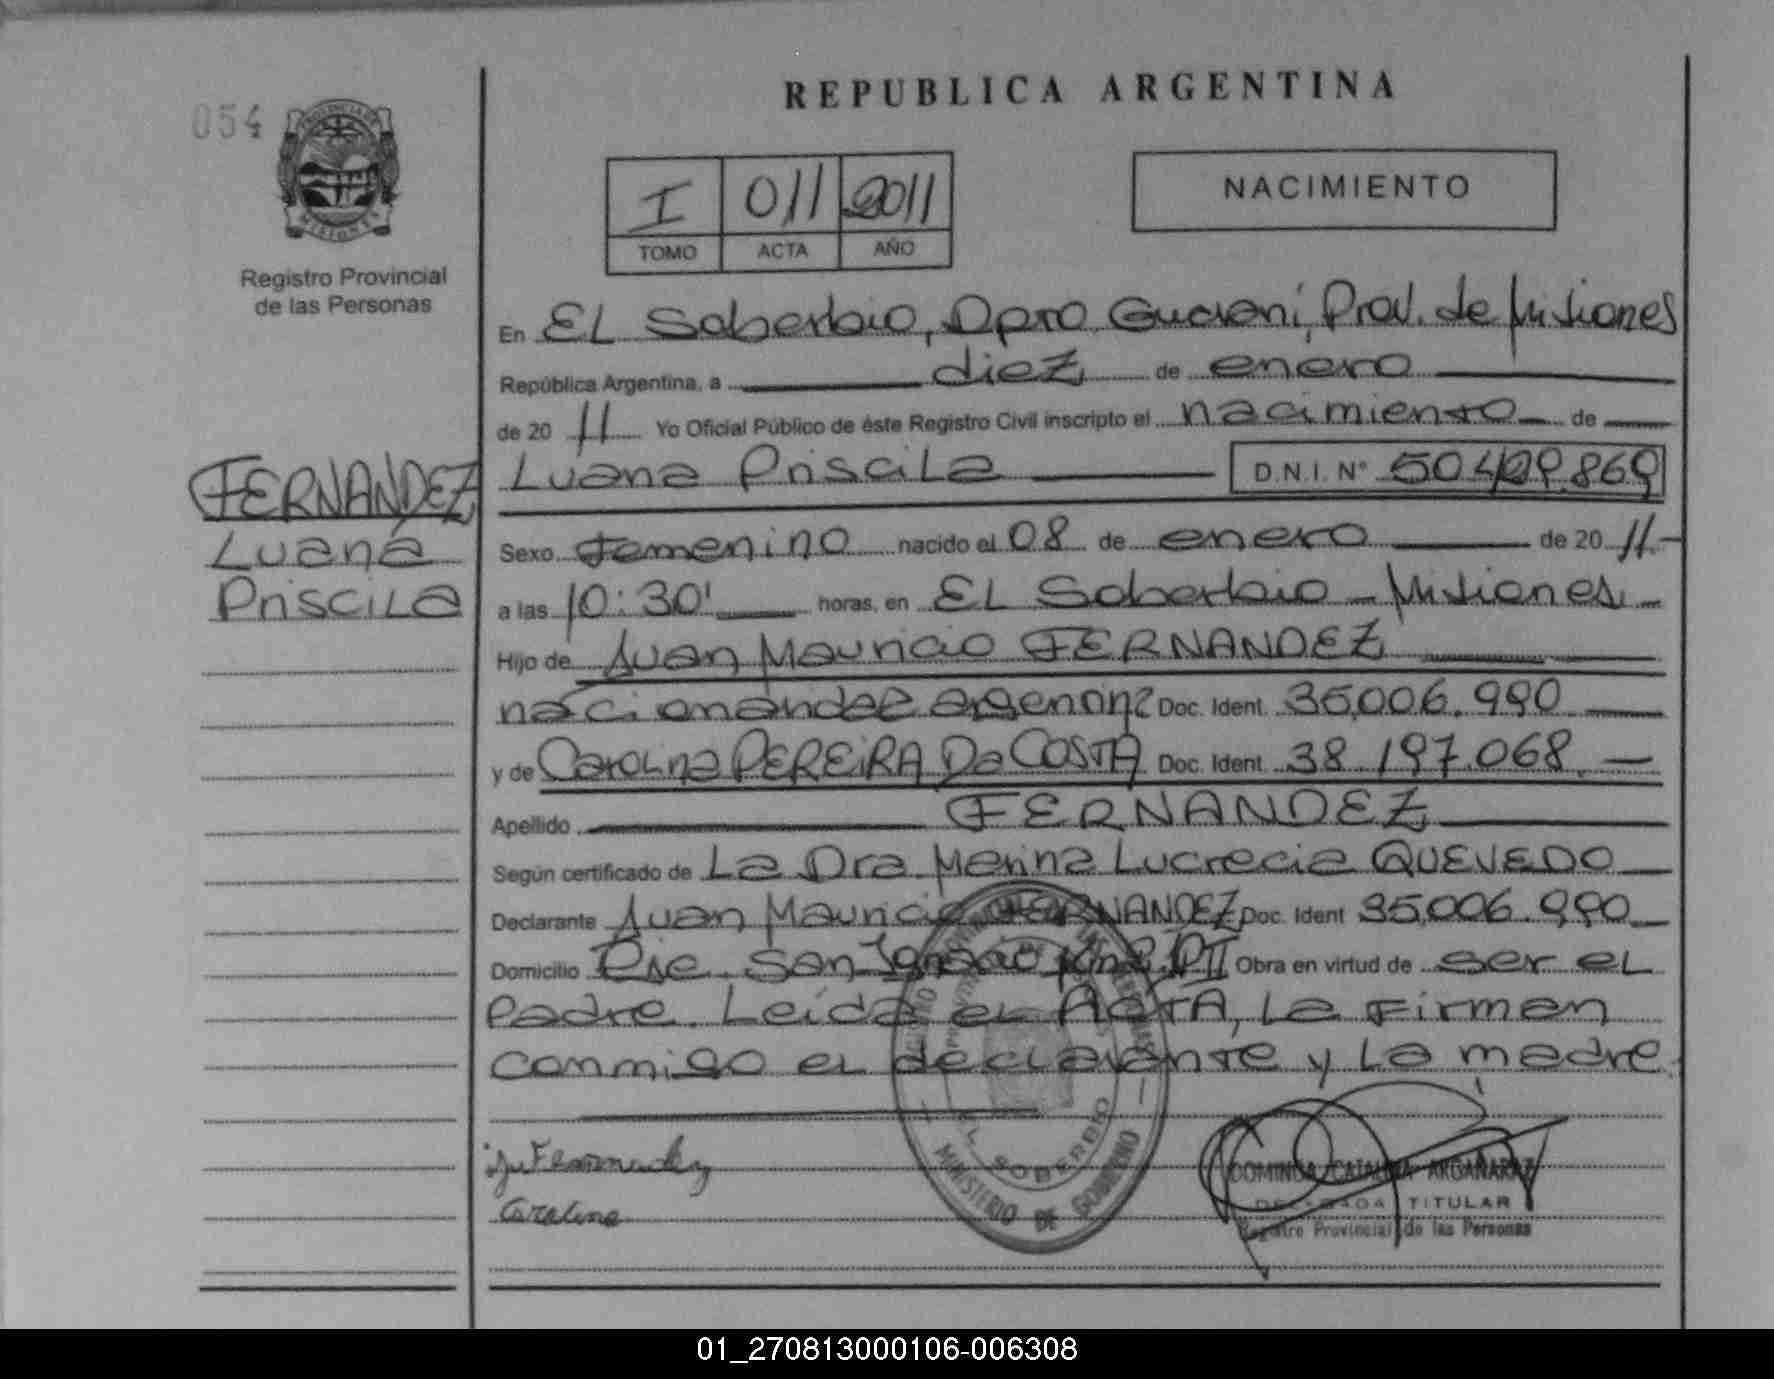 054
PROVINCIA DE
MISIONES
Registro Provincial
de las Personas
FERNANDEZ
Luana
Priscila
REPUBLICA ARGENTINA
I 011 2011
TOMO ACTA AÑO
NACIMIENTO
En EL Soberbio, Dpto Guaraní, Prov. de Misiones
República Argentina, a diez de enero
de 20 11 Yo Oficial Público de éste Registro Civil inscripto el nacimiento de
Luana Priscila D.N.I. Nº
Sexo Femenino nacido el 08 de enero de 20 11.-
a las 10:30' horas, en EL Soberbio - Misiones.-
Hijo de Juan Mauricio FERNANDEZ
nacionalidad argentina Doc. Ident. 35.006.990
y de Carolina PEREIRA Da COSTA Doc. Ident. 38.197.068.-
Apellido FERNANDEZ
Según certificado de La Dra Marina Lucrecia QUEVEDO
Declarante Juan Mauricio FERNANDEZ Doc. Ident 35.006.990
Domicilio Pje. San Ignacio Obra en virtud de ser el
Padre. Leída el ACTA, La Firman
conmigo el declarante y La madre.
Ju Fernandez
Carolina
EL SOBERBIO
MINISTERIO DE GOBIERNO
DOMINGA CATALINA ARGAÑARAZ
DELEGADA TITULAR
Registro Provincial de las Personas
01_270813000106-006308